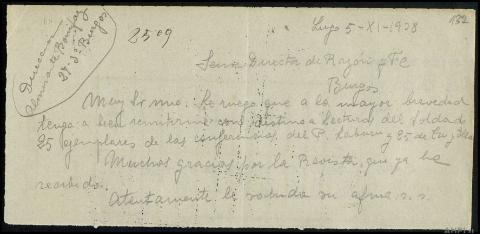 132
Lugo 5-XI-1938
2509
Dirección
Almirante Bonifaz
27-3º Burgos
Senor Director de Razón y Fe
Burgos
Muy Sr. mio: Le ruego que a la mayor brevedad
tenga a bien remitirme con destino a Lectura del Soldado
25 ejemplares de las conferencias del P. Laburu y 25 de
Muchas gracias por la Revista, que ya he
recibido.
Atentamente le saluda su afmo. s. s.